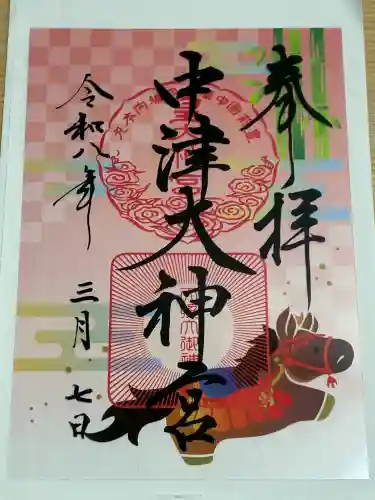 奉拝
中津大神宮
令和八年
三月七日